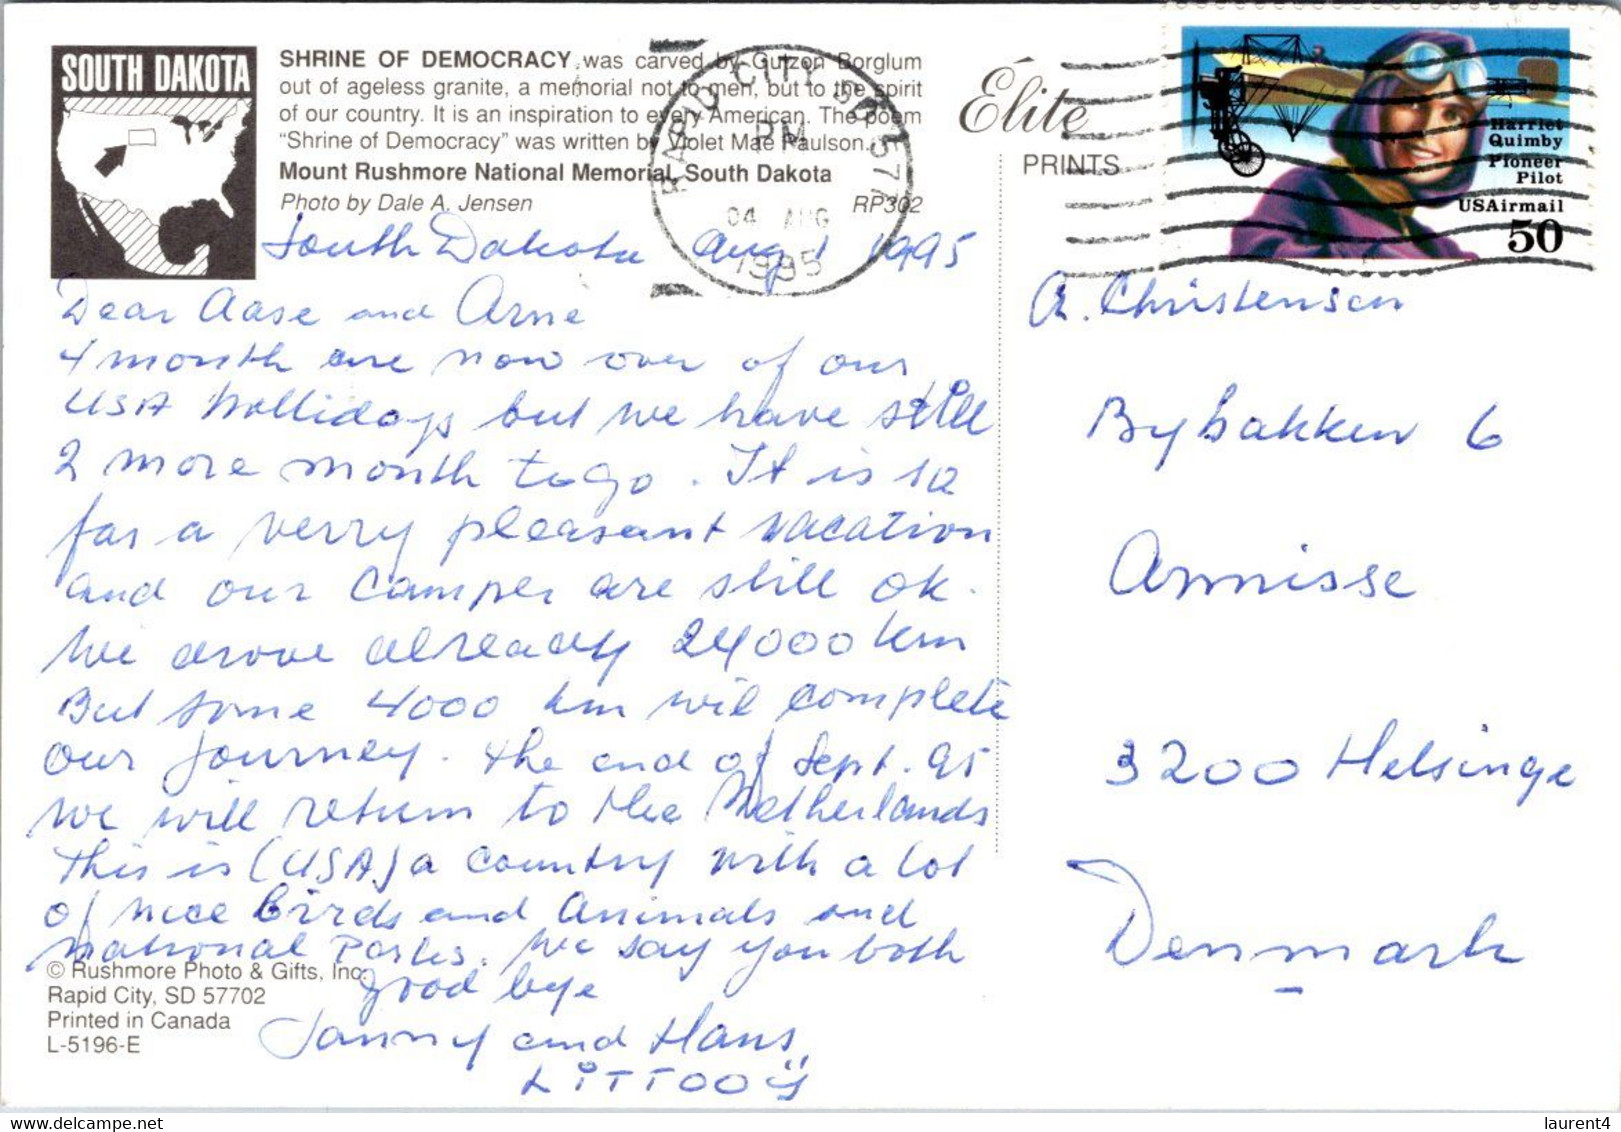 SOUTH DAKOTA
SHRINE OF DEMOCRACY was carved by Gutzon Borglum
out of ageless granite, a memorial not to men, but to the spirit
of our country. It is an inspiration to every American. The poem
"Shrine of Democracy" was written by Violet Mae Paulson.
Mount Rushmore National Memorial, South Dakota
Photo by Dale A. Jensen RP302
Élite
PRINTS
RAPID CITY SD 577
PM
04 AUG
1995
Harriet
Quimby
Pioneer
Pilot
USAirmail
50
South Dakota Aug 1 1995
Dear Aase and Arne
4 month are now over of our
USA hollidays but we have still
2 more month to go. It is so
far a verry pleasant vacation
and our camper are still ok.
We drove allready 24000 km
But some 4000 km wil complete
our journey. the end of Sept. 95
we will return to the Netherlands
This is (USA) a country with a lot
of nice Birds and Animals and
national Parks. We say you both
good bye
Janny and Hans
LiTTOOij
A. Christensen
Bybakken 6
Annisse
3200 Helsinge
Denmark
© Rushmore Photo & Gifts, Inc.
Rapid City, SD 57702
Printed in Canada
L-5196-E
laurent4